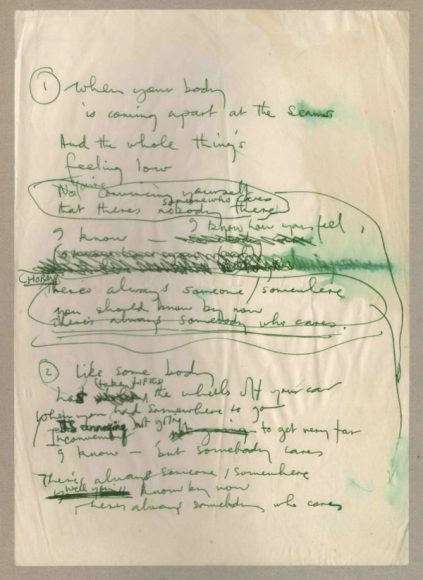 1 When your body
is coming apart at the seams
And the whole thing's
feeling low
You're
Now convincing yourself
someone who cares
that there's nobody there
I know — I know how you feel,
CHORUS
There's always someone / somewhere
you should know by now
there's always somebody who cares.
2 Like some body
taken
LIFTED
has the wheels off your car
When you had somewhere to go
It's annoying not going
Inconvenient
to get very far
I know — but somebody cares
There's always someone / somewhere
well you'll know by now
There's always somebody who cares